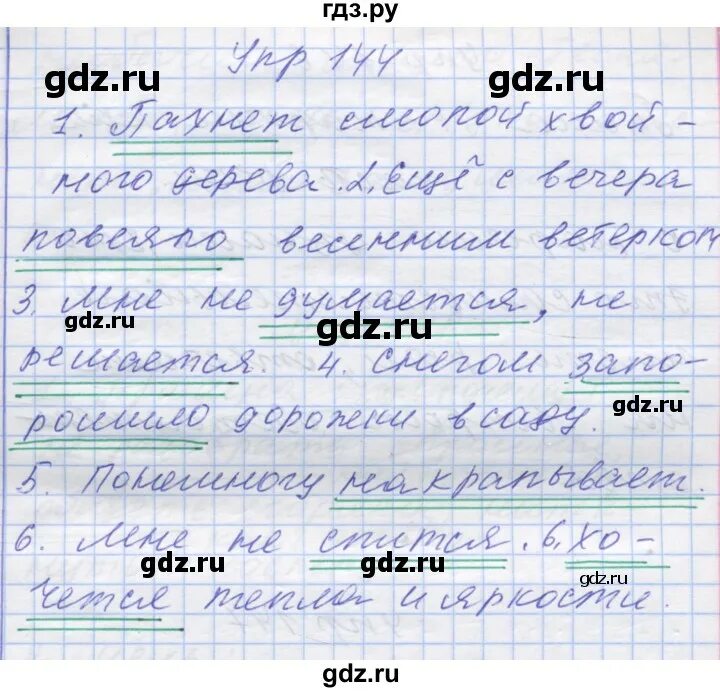 гдз.ру
Упр 144
gdz.ru gdz.ru
1. Пахнет смолой хвой-
ного дерева. 2. Ещё с вечера
повеяло весенним ветерком
3. Мне не думается, не
gdz.ru gdz.ru
решается. 4. Снегом запо-
gdz.ru
рошило дорожки в саду.
5. Понемногу накрапывает.
6. Мне не спится. 6. Хо-
gdz.ru gdz.ru
чется тепла и яркости.
gdz.ru